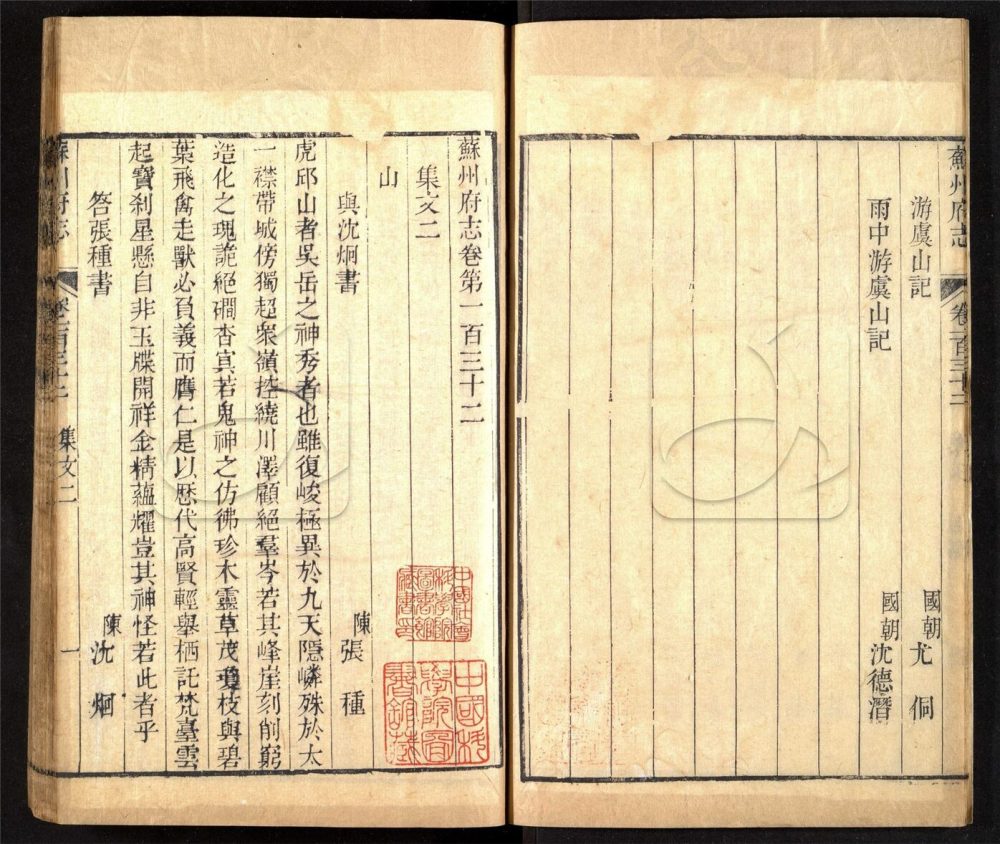 蘇州府志 卷一百三十二
游虞山記 國朝尤侗
雨中游虞山記 國朝沈德潛
蘇州府志卷第一百三十二
集文二
山
與沈炯書 陳張種
虎邱山者吳岳之神秀者也雖復峻極異於九天隱嶙殊於太
一襟帶城傍獨超衆嶺控繞川澤顧絕羣岑若其峰崖刻削窮
造化之瑰詭絕磵杳㝠若鬼神之仿彿珍木靈草茂瓊枝與碧
葉飛禽走獸必負義而膺仁是以歷代高賢輕舉栖託梵臺雲
起寶剎星懸自非玉牒開祥金精蘊耀豈其神怪若此者乎
答張種書 陳沈炯
蘇州府志 卷一百三十二 集文二 一
中國社會科學院圖書館藏書印
中國科學院圖書館藏